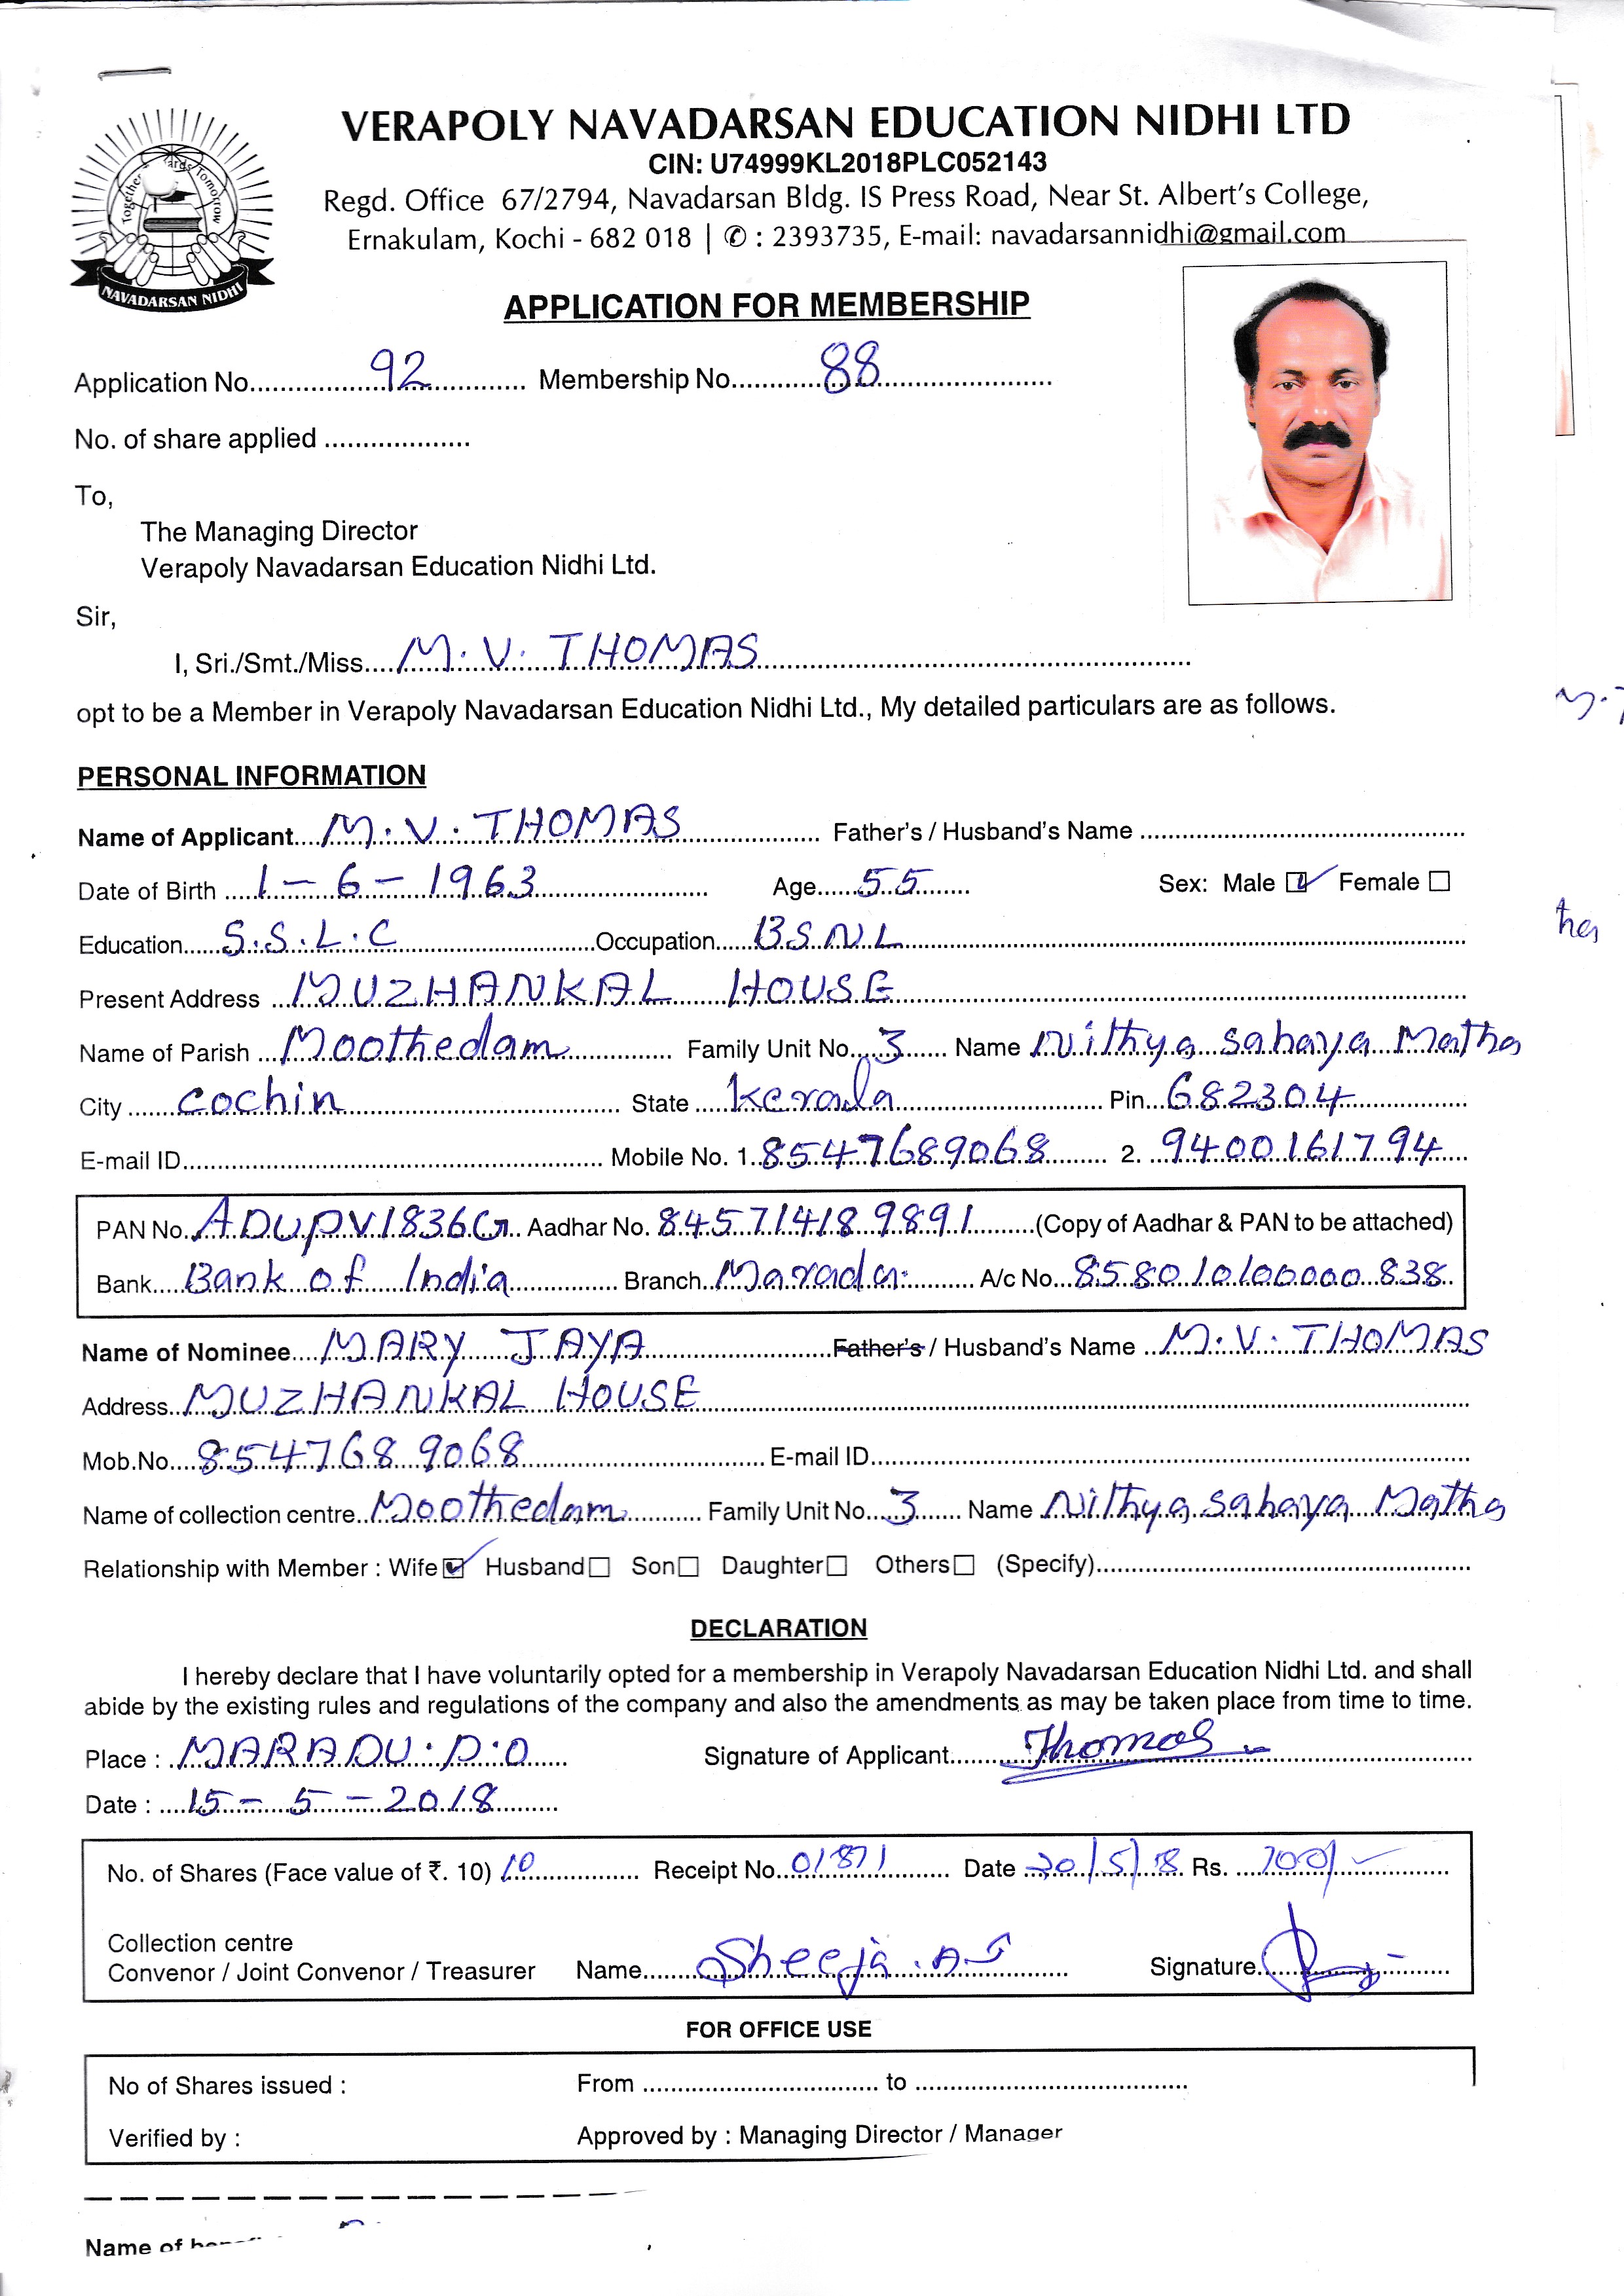 VERAPOLY NAVADARSAN EDUCATION NIDHI LTD
CIN: U74999KL2018PLC052143
Regd. Office 67/2794, Navadarsan Bldg. IS Press Road, Near St. Albert's College,
Ernakulam, Kochi - 682 018 | ✆ : 2393735, E-mail: navadarsannidhi@gmail.com
Together Tomorrow
NAVADARSAN NIDHI
APPLICATION FOR MEMBERSHIP
Application No. 92 Membership No. 88
No. of share applied
To,
The Managing Director
Verapoly Navadarsan Education Nidhi Ltd.
Sir,
I, Sri./Smt./Miss. M.V. THOMAS
opt to be a Member in Verapoly Navadarsan Education Nidhi Ltd., My detailed particulars are as follows.
PERSONAL INFORMATION
Name of Applicant M.V. THOMAS Father's / Husband's Name
Date of Birth 1-6-1963 Age 55 Sex: Male ☑ Female ☐
Education S.S.L.C Occupation BSNL
Present Address MUZHANKAL HOUSE
Name of Parish Moothedam Family Unit No. 3 Name Nithya sahaya Matha
City cochin State Kerala Pin 682304
E-mail ID Mobile No. 1. 8547689068 2. 9400161794
PAN No. ADUPV1836G Aadhar No. 845714189891 (Copy of Aadhar & PAN to be attached)
Bank Bank of India Branch Maradu A/c No. 858010100000838
Name of Nominee MARY JAYA Father's / Husband's Name M.V. THOMAS
Address MUZHANKAL HOUSE
Mob.No. 8547689068 E-mail ID
Name of collection centre Moothedam Family Unit No. 3 Name Nithya sahaya Matha
Relationship with Member : Wife ☑ Husband ☐ Son ☐ Daughter ☐ Others ☐ (Specify)
DECLARATION
I hereby declare that I have voluntarily opted for a membership in Verapoly Navadarsan Education Nidhi Ltd. and shall
abide by the existing rules and regulations of the company and also the amendments as may be taken place from time to time.
Place : MARADU.P.O Signature of Applicant Thomas
Date : 15-5-2018
No. of Shares (Face value of ₹. 10) 10 Receipt No. 01871 Date 20/5/18 Rs. 100/-
Collection centre
Convenor / Joint Convenor / Treasurer Name Sheeja.A.J Signature
FOR OFFICE USE
No of Shares issued : From to
Verified by : Approved by : Managing Director / Manager
Name of